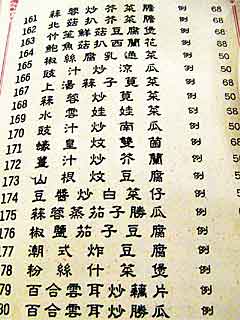 161 蒜蓉炒芥菜膽 例 68
162 北菇扒芥菜膽 例 68
163 什笙鮮菇豆腐煲 例
164 鮑魚菇扒西蘭花 例 88
165 椒絲腐乳通菜 例 50
166 豉汁炒涼瓜 例 50
167 上湯蒜子莧菜 例 68
168 蒜蓉炒莧菜 例 50
169 水雲娃娃菜 例 58
170 豉汁炒南瓜 例 50
171 蠔皇炆雙菌 例 88
172 薑汁炒芥蘭 例 50
173 山根炆豆腐 例 50
174 豆醬炒白菜仔 例
175 蒜蓉蒸茄子勝瓜 例
176 椒鹽茄子豆腐 例
177 潮式炸豆腐 例
78 粉絲什菜煲 例
79 百合雲耳炒藕片 例
80 百合雲耳炒勝瓜 例